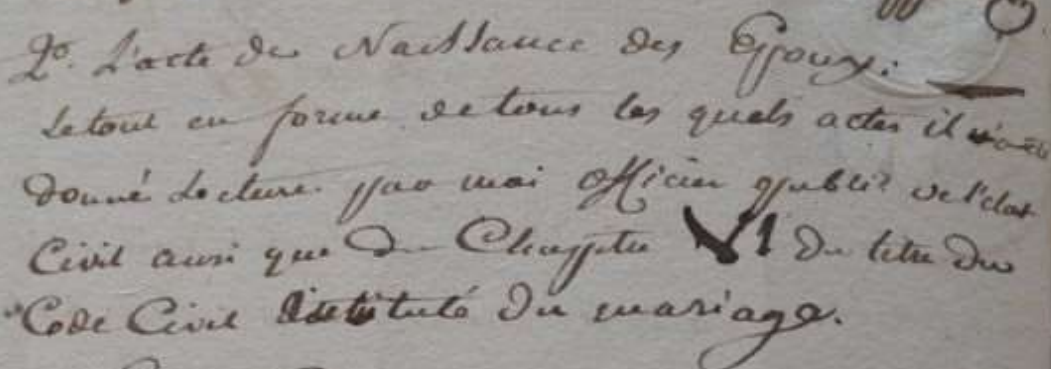 2º. L'acte de Naissance des Epoux.
Le tout en forme de tous les quels actes il a été
donné Lecture par moi Officier public de l'etat
Civil ausi que du Chapitre VI du titre du
Code Civil intitulé Du mariage.